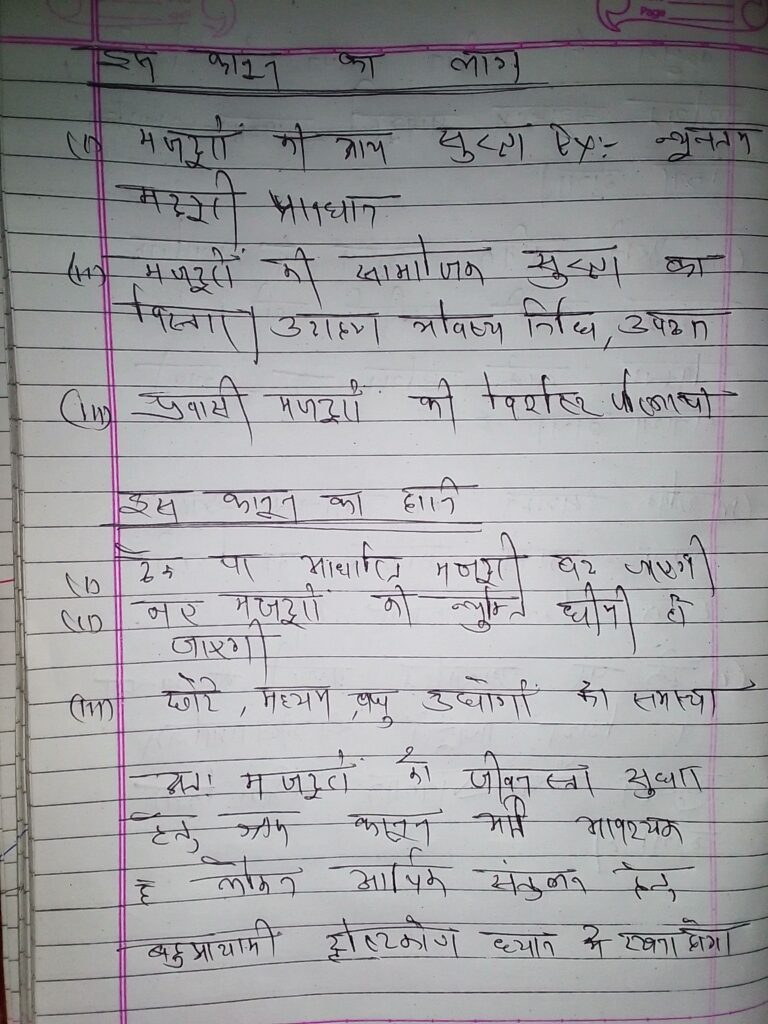 इस कानून का लाभ
(i) मजदूरों की आय सुरक्षा Ex:- न्यूनतम
मजदूरी प्रावधान
(ii) मजदूरों की सामाजिक सुरक्षा का
विस्तार उदाहरण भविष्य निधि, उपदान
(iii) प्रवासी मजदूरों की विशिष्ट परिभाषा
इस कानून का हानि
(i) टेक पर आधारित मजदूरी घट जाएगी
(ii) नए मजदूरों की नियुक्ति धीमी हो
जाएगी
(iii) छोटे, मध्यम, लघु उद्योगों को समस्या
अतः मजदूरों के जीवन स्तर सुधार
हेतु श्रम कानून अति आवश्यक
है लेकिन आर्थिक संतुलन हेतु
बहुआयामी दृष्टिकोण ध्यान में रखना होगा